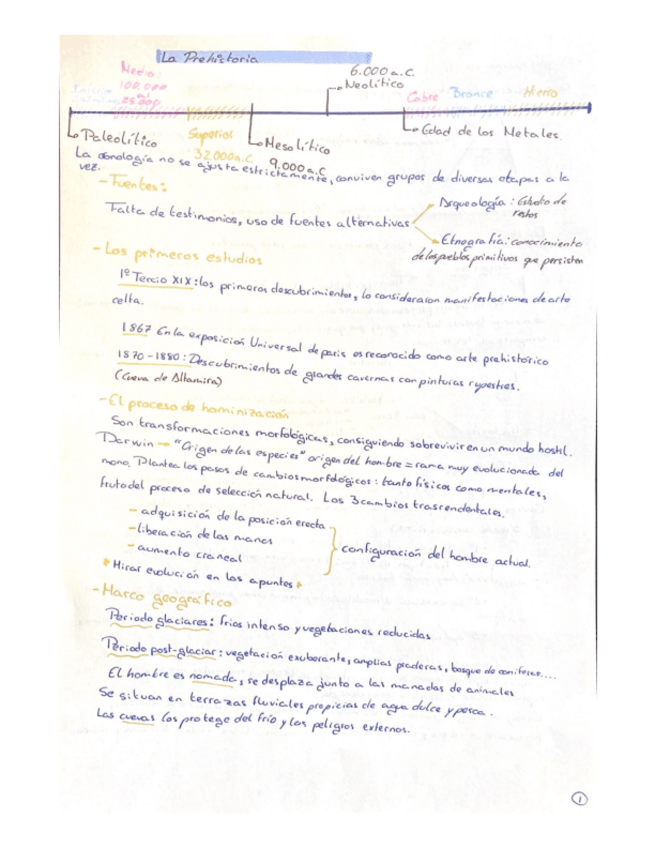 La Prehistoria
Medio:
100.000
25.000
6.000 a.C.
Neolítico
Cobre Bronce Hierro
Paleolítico
Superior
32.000 a.C
Mesolítico
9.000 a.C
Edad de los Metales.
La cronología no se ajusta estrictamente, conviven grupos de diversas etapas a la
vez.
- Fuentes:
Falta de testimonios, uso de fuentes alternativas
Arqueología: Estudio de
restos
Etnografía: conocimiento
de los pueblos primitivos que persisten
- Los primeros estudios
1º Tercio XIX: los primeros descubrimientos, lo consideraron manifestaciones de arte
celta.
1867 En la exposición Universal de paris es reconocido como arte prehistórico
1870-1880: Descubrimientos de grandes cavernas con pinturas rupestres.
(Cueva de Altamira)
- El proceso de hominización
Son transformaciones morfológicas, consiguiendo sobrevivir en un mundo hostil.
Darwin → "Origen de las especies" origen del hombre = rama muy evolucionada del
mono. Plantea los pasos de cambios morfológicos: tanto físicos como mentales,
fruto del proceso de selección natural. Los 3 cambios trascendentales.
- adquisición de la posición erecta
- liberación de las manos
- aumento craneal
configuración del hombre actual.
* Mirar evolución en los apuntes *
- Marco geográfico
Periodo glaciares: frios intenso y vegetaciones reducidas
Periodo post-glaciar: vegetación exuberante, amplias praderas, bosque de coníferas....
El hombre es nomada, se desplaza junto a las manadas de animales
Se situan en terrazas fluviales propicias de agua dulce y pesca.
Las cuevas los protege del frío y los peligros externos.
1